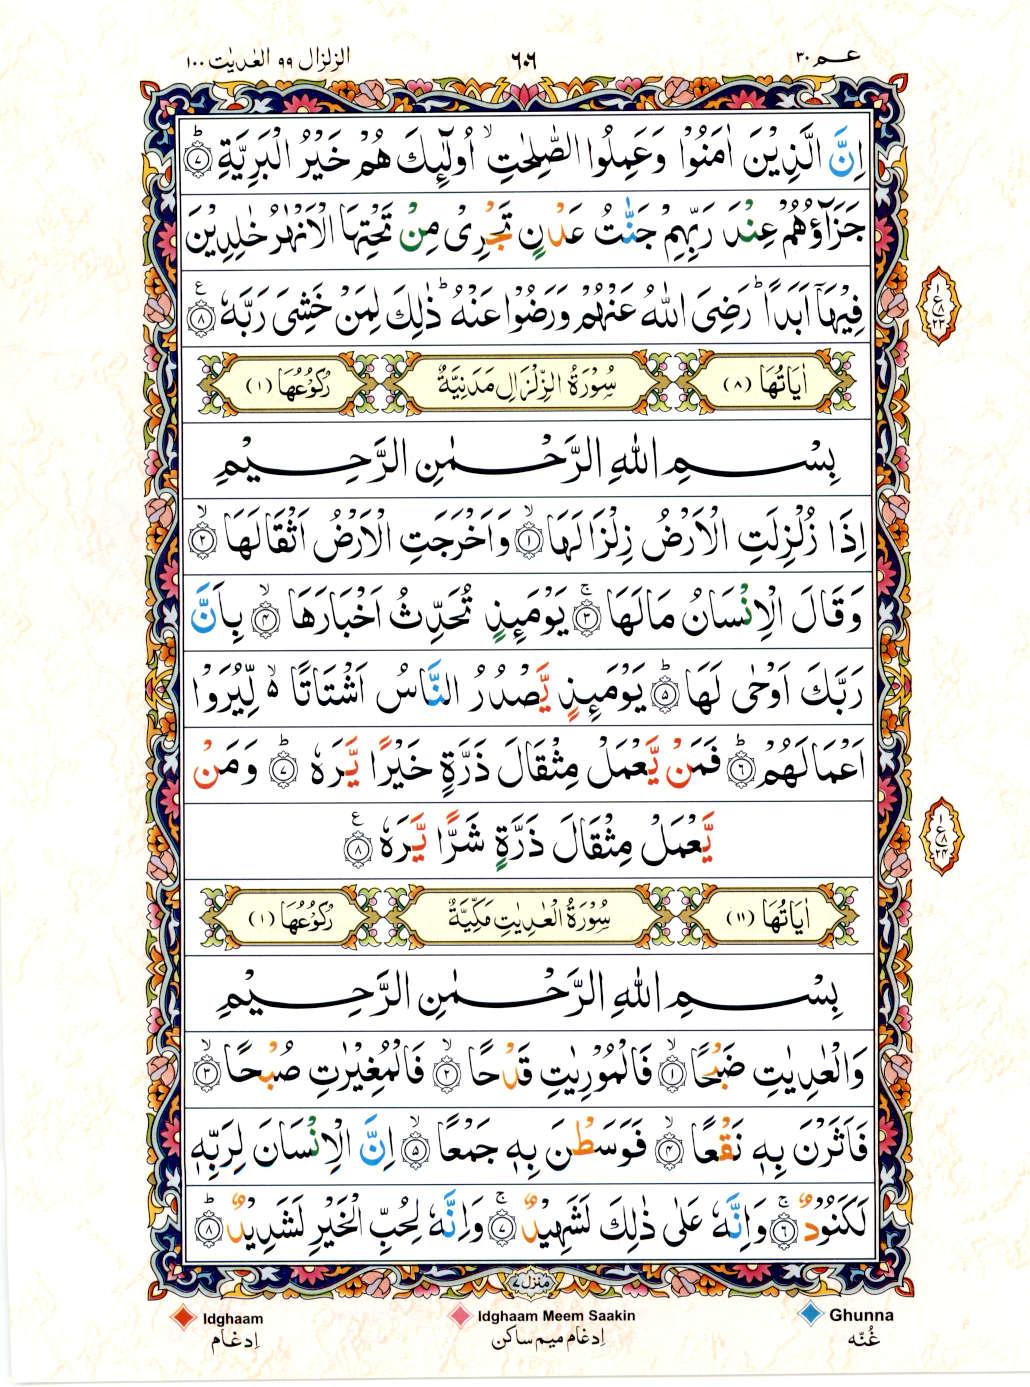 عـم ٣٠ ٦٠٦ الزلزال ٩٩ العٰدیٰت ١٠٠
اِنَّ الَّذِيْنَ اٰمَنُوْا وَعَمِلُوا الصّٰلِحٰتِ ۙ اُولٰٓئِكَ هُمْ خَيْرُ الْبَرِيَّةِ ؕ ﴿٧﴾
جَزَآؤُهُمْ عِنْدَ رَبِّهِمْ جَنّٰتُ عَدْنٍ تَجْرِیْ مِنْ تَحْتِهَا الْاَنْهٰرُ خٰلِدِيْنَ
فِيْهَاۤ اَبَدًا ؕ رَضِیَ اللّٰهُ عَنْهُمْ وَرَضُوْا عَنْهُ ؕ ذٰلِكَ لِمَنْ خَشِیَ رَبَّهٗ ﴿٨﴾ ع
١ ع ٨ ٢٣
اٰيَاتُهَا (٨) سُوْرَةُ الزِّلْزَالِ مَدَنِيَّةٌ رُكُوْعُهَا (١)
بِسْمِ اللّٰهِ الرَّحْمٰنِ الرَّحِيْمِ
اِذَا زُلْزِلَتِ الْاَرْضُ زِلْزَالَهَا ۙ ﴿١﴾ وَاَخْرَجَتِ الْاَرْضُ اَثْقَالَهَا ۙ ﴿٢﴾
وَقَالَ الْاِنْسَانُ مَالَهَا ۚ ﴿٣﴾ يَوْمَئِذٍ تُحَدِّثُ اَخْبَارَهَا ۙ ﴿٤﴾ بِاَنَّ
رَبَّكَ اَوْحٰی لَهَا ؕ ﴿٥﴾ يَوْمَئِذٍ يَّصْدُرُ النَّاسُ اَشْتَاتًا ۙ۬ لِّيُرَوْا
اَعْمَالَهُمْ ؕ ﴿٦﴾ فَمَنْ يَّعْمَلْ مِثْقَالَ ذَرَّةٍ خَيْرًا يَّرَهٗ ؕ ﴿٧﴾ وَمَنْ
يَّعْمَلْ مِثْقَالَ ذَرَّةٍ شَرًّا يَّرَهٗ ﴿٨﴾ ع
١ ع ٨ ٢٤
اٰيَاتُهَا (١١) سُوْرَةُ الْعٰدِيٰتِ مَكِّيَّةٌ رُكُوْعُهَا (١)
بِسْمِ اللّٰهِ الرَّحْمٰنِ الرَّحِيْمِ
وَالْعٰدِيٰتِ ضَبْحًا ۙ ﴿١﴾ فَالْمُوْرِيٰتِ قَدْحًا ۙ ﴿٢﴾ فَالْمُغِيْرٰتِ صُبْحًا ۙ ﴿٣﴾
فَاَثَرْنَ بِهٖ نَقْعًا ۙ ﴿٤﴾ فَوَسَطْنَ بِهٖ جَمْعًا ۙ ﴿٥﴾ اِنَّ الْاِنْسَانَ لِرَبِّهٖ
لَكَنُوْدٌ ۚ ﴿٦﴾ وَاِنَّهٗ عَلٰی ذٰلِكَ لَشَهِيْدٌ ۚ ﴿٧﴾ وَاِنَّهٗ لِحُبِّ الْخَيْرِ لَشَدِيْدٌ ؕ ﴿٨﴾
منزل ٧
Idghaam Idghaam Meem Saakin Ghunna
اِدغـام اِدغام میم ساکن غُنّه